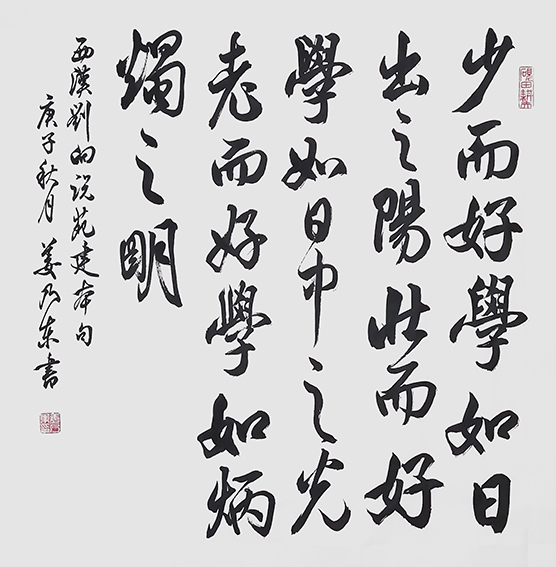 少而好學如日
出之陽壯而好
學如日中之光
老而好學如炳
燭之明
西漢劉向說苑建本句
庚子秋月 姜乃東書